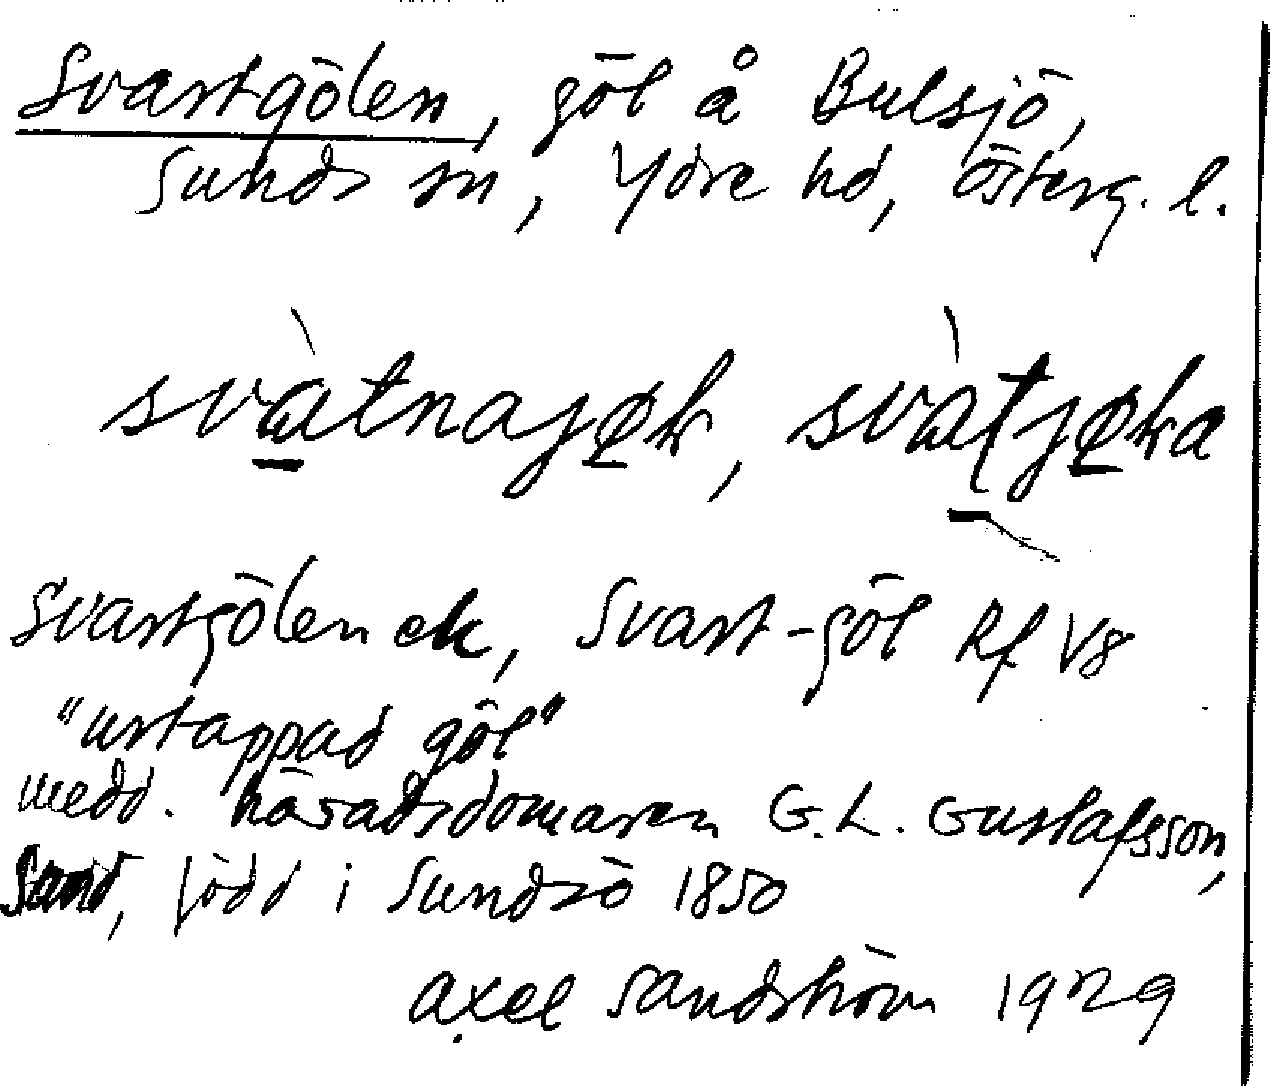 Svartgölen, göl å Bulsjö,
Sunds sn, Ydre hd, Österg. l.
svàtnajøk, svàtjøka
Svartgölen ek, Svart-göl Rf V8
"urtappad göl"
medd. häradsdomaren G.L. Gustafsson,
Sand, född i Sundsö 1850
Axel Sandström 1929